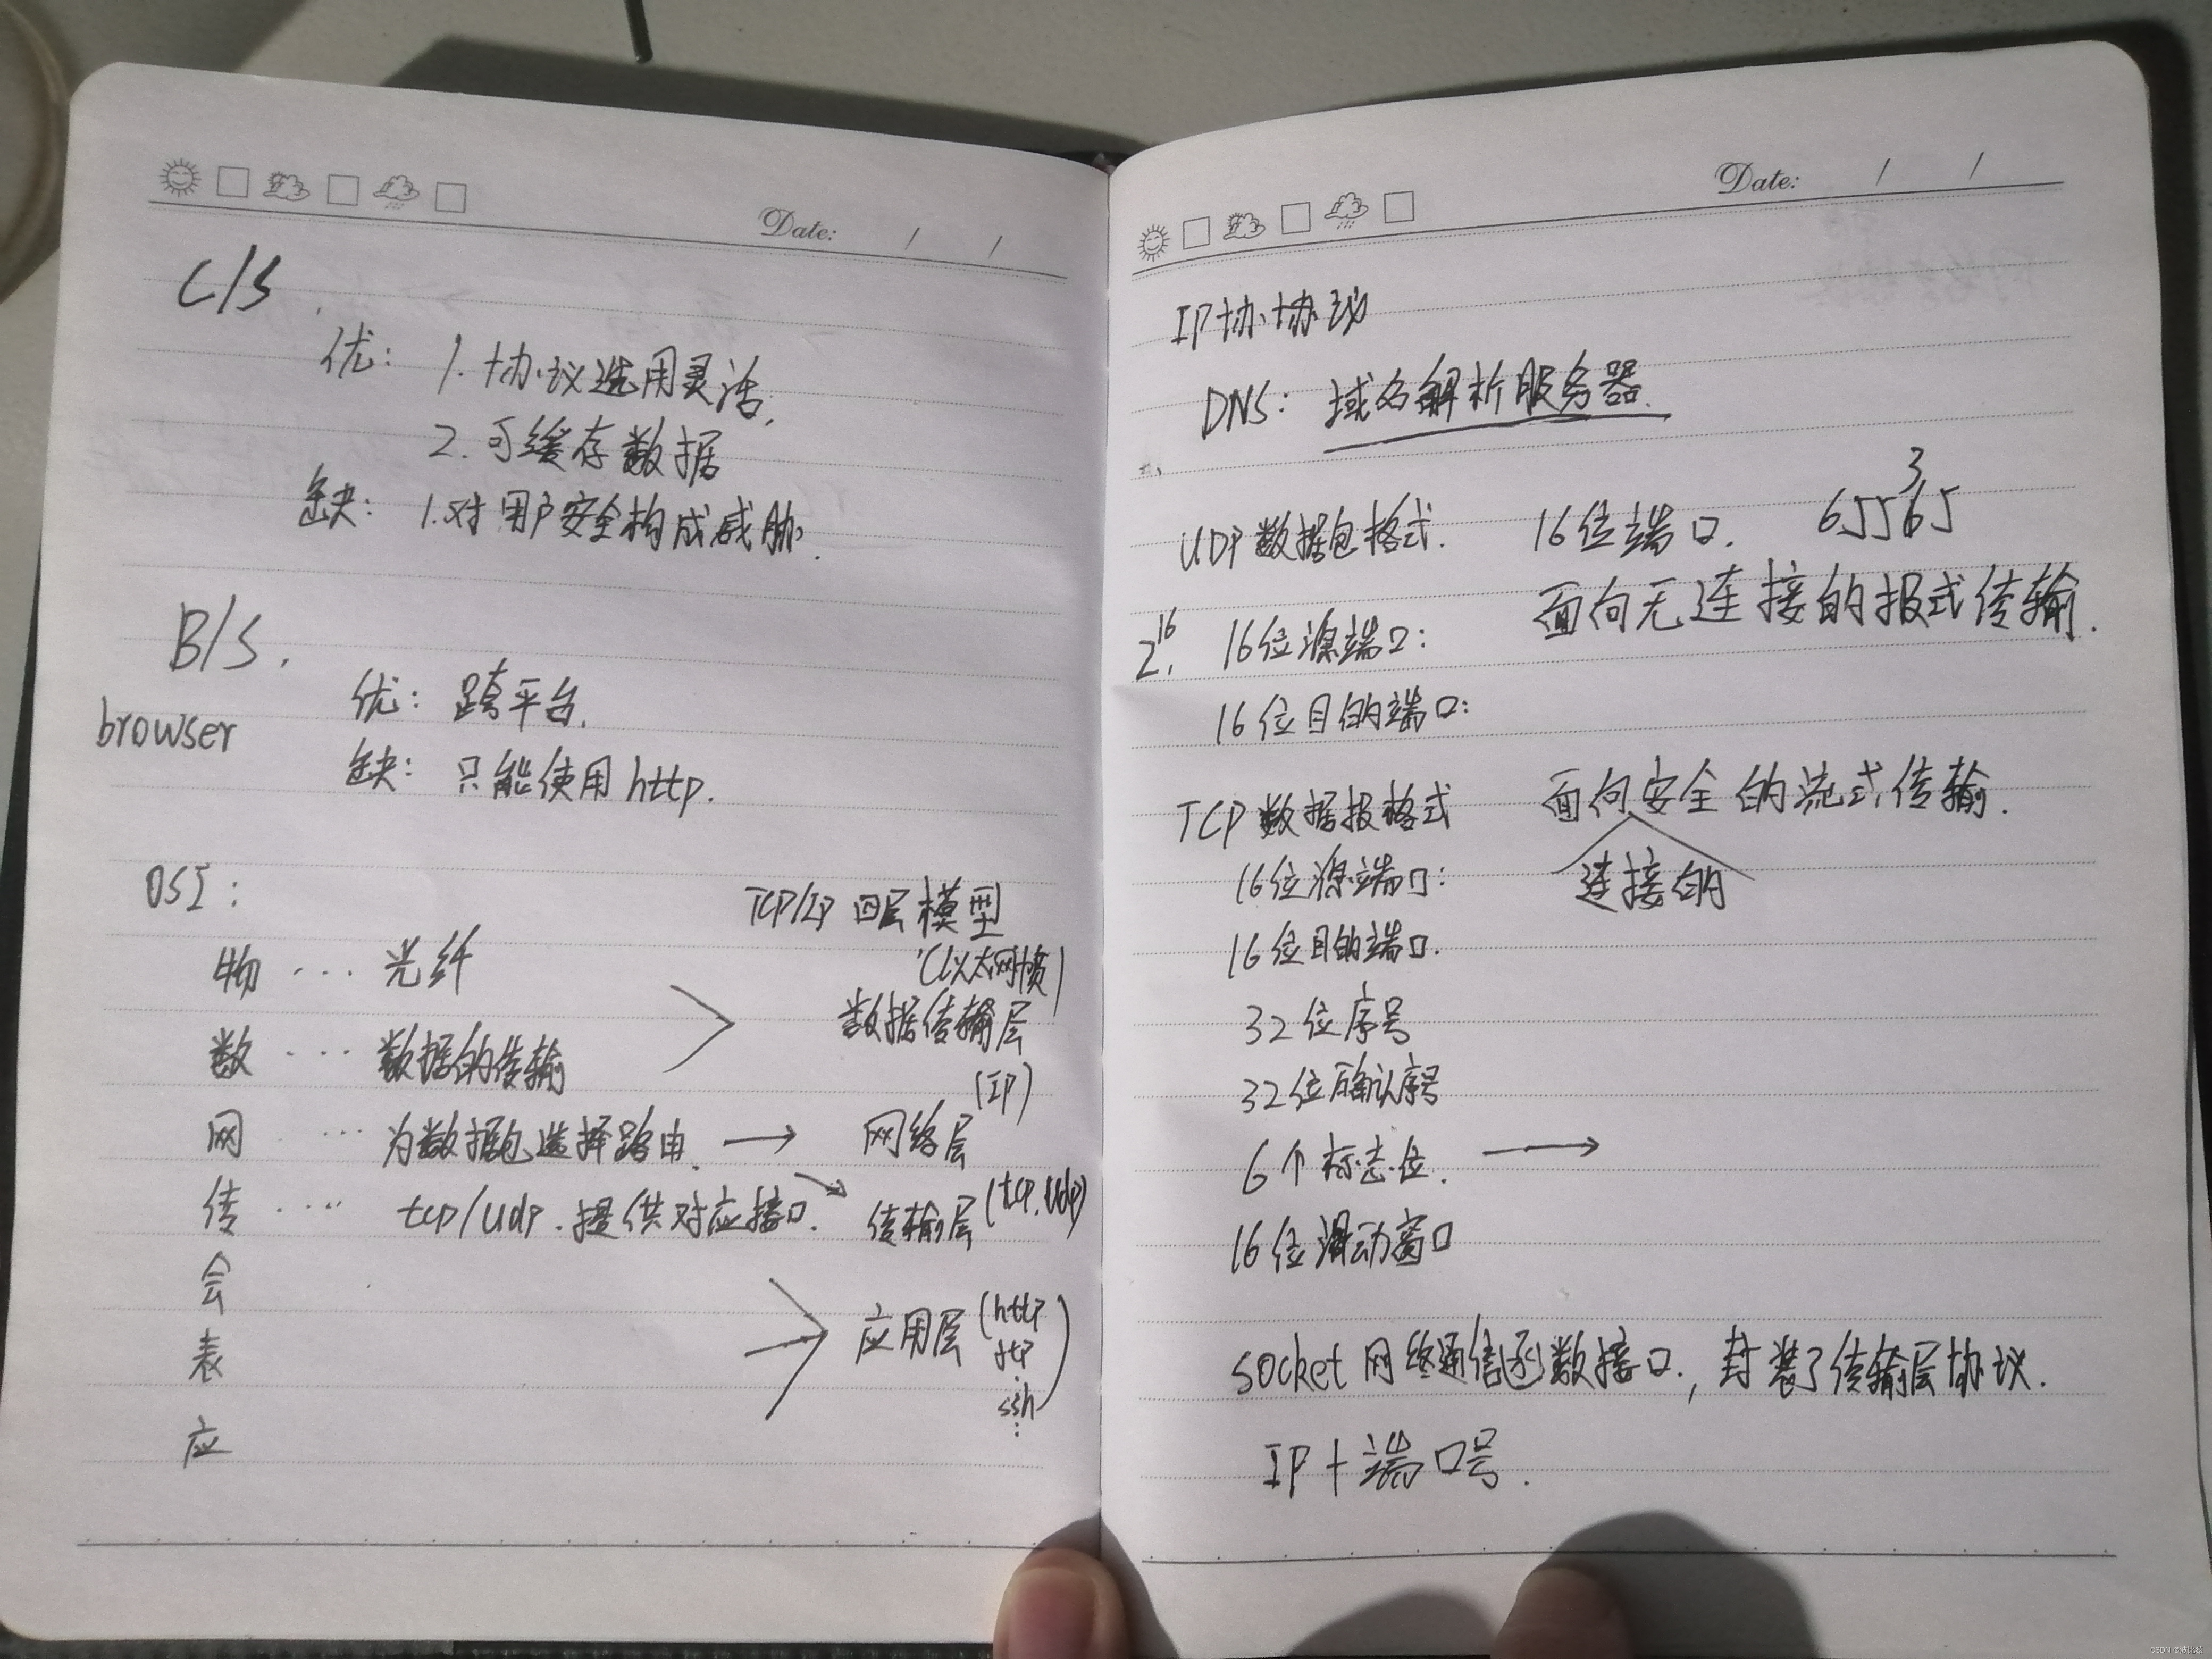 Date: / /
C/S.
优: 1.协议选用灵活,
2.可缓存数据
缺: 1.对用户安全构成威胁.
B/S.
browser
优: 跨平台.
缺: 只能使用http.
OSI:
TCP/IP 四层模型
物 ... 光纤
(以太网帧)
数据传输层
数 ... 数据的传输
(IP)
网 ... 为数据包选择路由. → 网络层
传 ... tcp/udp.提供对应接口. → 传输层(tcp.udp)
会
表
应
应用层(http
ftp
ssh
⋮)
Date: / /
IP协协议
DNS: 域名解析服务器.
3
UDP数据包格式. 16位端口. 65565
面向无连接的报式传输.
2^16. 16位源端口:
16位目的端口:
TCP数据报格式 面向安全的流式传输.
16位源端口: 连接的
16位目的端口.
32位序号
32位确认序号
6个标志位. →
16位滑动窗口
socket网络通信函数接口, 封装了传输层协议.
IP+端口号.